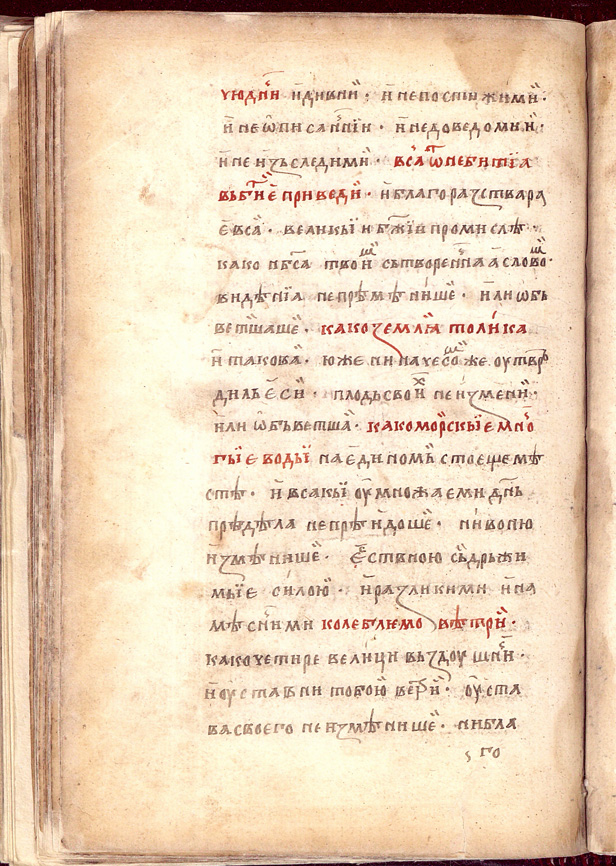 ꙋюднїи и҆дивнїи · и҆непостижимїи ·
и҆неѡ҆писаннїи · и҆недоведомїи ·
и҆неиꙁъследимїи · всꙗ ѿнебитїꙗ
въбт҃їе приведїи · и҆благораꙁствараꙗ
е҆ всꙗ · великыи бж҃їи промислѣ ·
како нб҃са твоꙗ҆ сътвореннаꙗ словѡм
видѣнїꙗ непрѣмѣнише · или ѡбь
ветшаше · како ꙁемлꙗ толика
и҆ такова · юже ниначесомже оутвръ
дилъ е҆си · плодьсвои неиꙁмени ·
или ѡбьветша · како морскыꙗ мнѡ
гыие водьї наединомь стоеще мѣ
стѣ · и҆ всакьї оумножаеми дн҃ь
прѣдѣла непрѣидоше · ниволю
иꙁмѣнише · е҆стьвною съдрьжи
мьїе силою · и҆раꙁликими и҆на
мѣсними колеблемо вѣтрїи ·
како четире велици въꙁдоушнїи ·
и҆ оуставни тобою ветрїи · оуста
васвоего неиꙁмѣнише · нибла
го